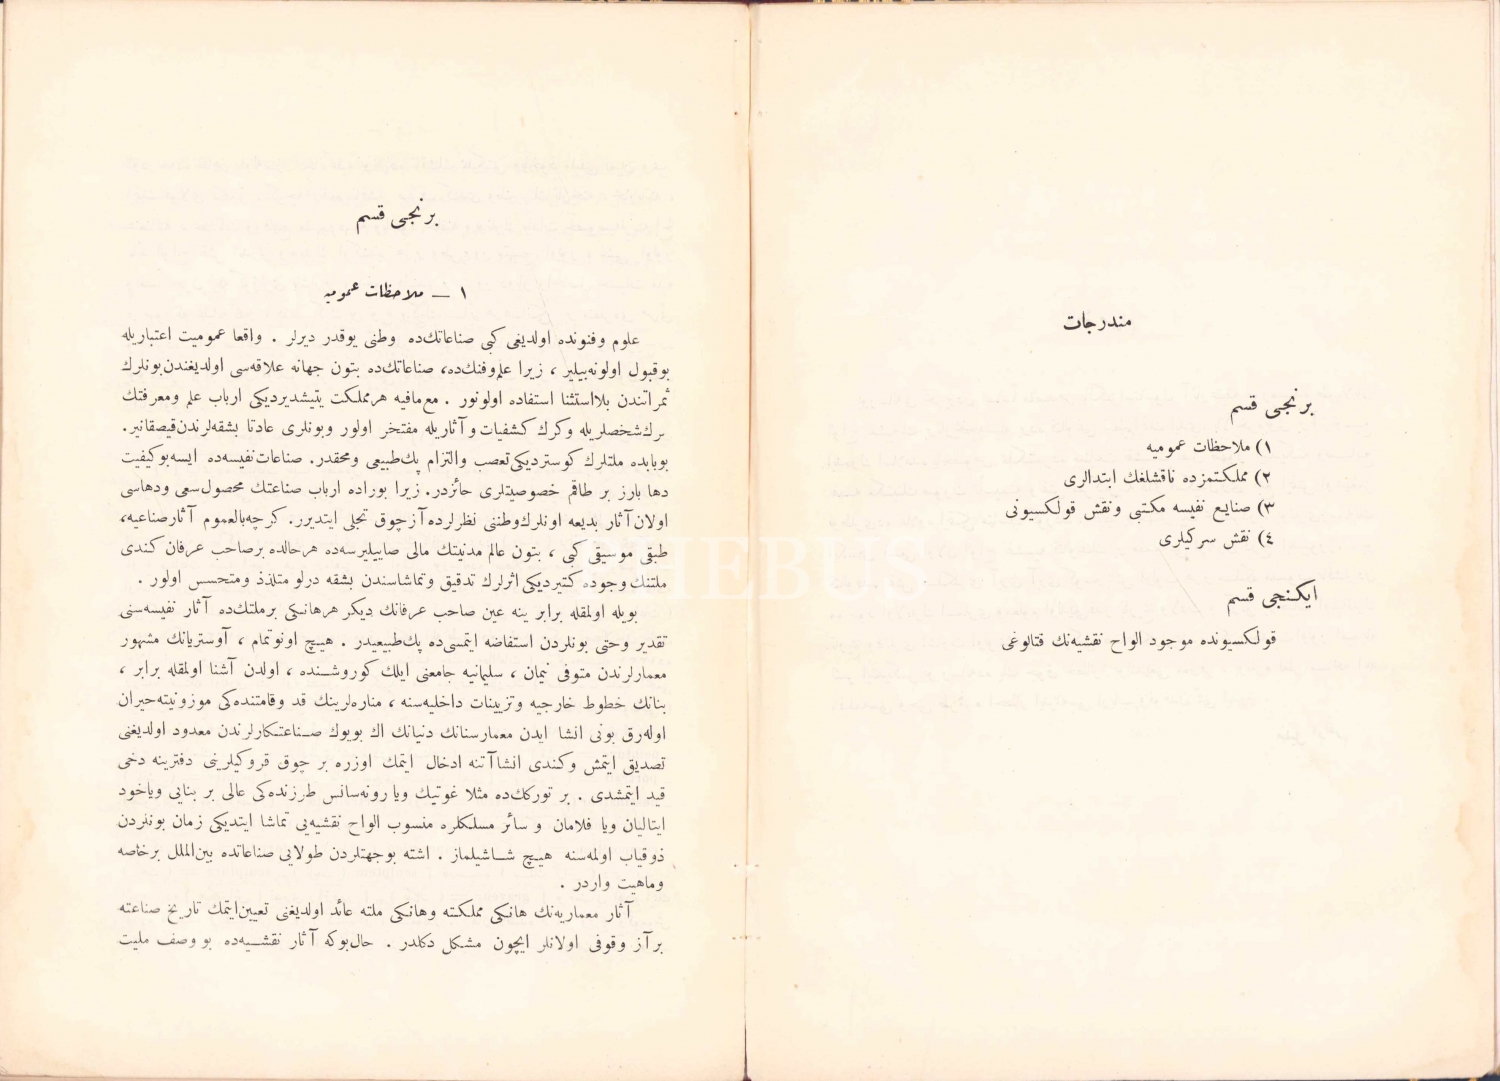 مندرجات
برنجی قسم
١) ملاحظات عمومیه
٢) مملکتمزده ناقشلغك ابتدالری
٣) صنایع نفیسه مکتبی ونقش قولکسیونی
٤) نقش سرکیلری
ایکنجی قسم
قولکسیونده موجود الواح نقشیه‌نك قتالوغی
برنجی قسم
١ — ملاحظات عمومیه
علوم وفنونده اولدیغی کبی صناعاتك‌ده وطنی یوقدر دیرلر . واقعا عمومیت اعتباریله
بوقبول اولونه‌بیلیر ، زیرا علم‌وفنك‌ده، صناعاتك‌ده بتون جهانه علاقه‌سی اولدیغندن‌بونلرك
ثمراتندن بلااستثنا استفاده اولونور . مع‌مافیه هرمملکت یتیشدیردیکی ارباب علم ومعرفتك
کرك‌شخصلریله وکرك کشفیات وآثاریله مفتخر اولور وبونلری عادتا بشقه‌لرندن‌قیصقانیر.
بوبابده ملتلرك کوستردیکی‌تعصب والتزام پك‌طبیعی ومحقدر. صناعات‌نفیسه‌ده ایسه‌بوکیفیت
دها بارز بر طاقم خصوصیتلری حائزدر. زیرا بوراده ارباب صناعتك محصول‌سعی ودهاسی
اولان‌آثار بدیعه اونلرك‌وطننی نظرلرده‌آزچوق تجلی ایتدیرر. کرچه‌بالعموم آثارصناعیه،
طبقی موسیقی کبی ، بتون عالم مدنیتك مالی صاییلیرسه‌ده هرحالده برصاحب عرفان کندی
ملتنك‌وجوده کتیردیکی اثرلرك تدقیق وتماشاسندن بشقه درلو متلذذ ومتحسس اولور .
بویله اولمقله برابر ینه عین صاحب عرفانك دیکر هرهانکی برملتك‌ده آثار نفیسه‌سنی
تقدیر وحتی بونلردن استفاضه ایتمسی‌ده پك‌طبیعیدر . هیچ اونوتمام ، آوستریانك مشهور
معمارلرندن متوفی نیمان ، سلیمانیه جامعنی ایلك کوروشنده ، اولدن آشنا اولمقله برابر ،
بنانك خطوط خارجیه وتزیینات داخلیه‌سنه ، مناره‌لرینك قد وقامتنده‌کی موزونیته‌حیران
اوله‌رق بونی انشا ایدن معمارسنانك دنیانك اك بویوك صناعتکارلرندن معدود اولدیغنی
تصدیق ایتمش وکندی انشاآتنه ادخال ایتمك اوزره بر چوق قروکیلرینی دفترینه دخی
قید ایتمشدی . بر تورکك‌ده مثلا غوتیك ویا رونه‌سانس طرزنده‌کی عالی بر بنایی ویاخود
ایتالیان ویا فلامان و سائر مسلکلره منسوب الواح نقشیه‌یی تماشا ایتدیکی زمان بونلردن
ذوقیاب اولمه‌سنه هیچ شاشیلماز . اشته بوجهتلردن طولایی صناعاتده بین‌الملل برخاصه
وماهیت واردر .
آثار معماریه‌نك هانکی مملکته وهانکی ملته عائد اولدیغنی تعیین‌ایتمك تاریخ صناعته
برآز وقوفی اولانلر ایچون مشکل دکلدر . حال‌بوکه آثار نقشیه‌ده بو وصف ملیت
PHEBUS